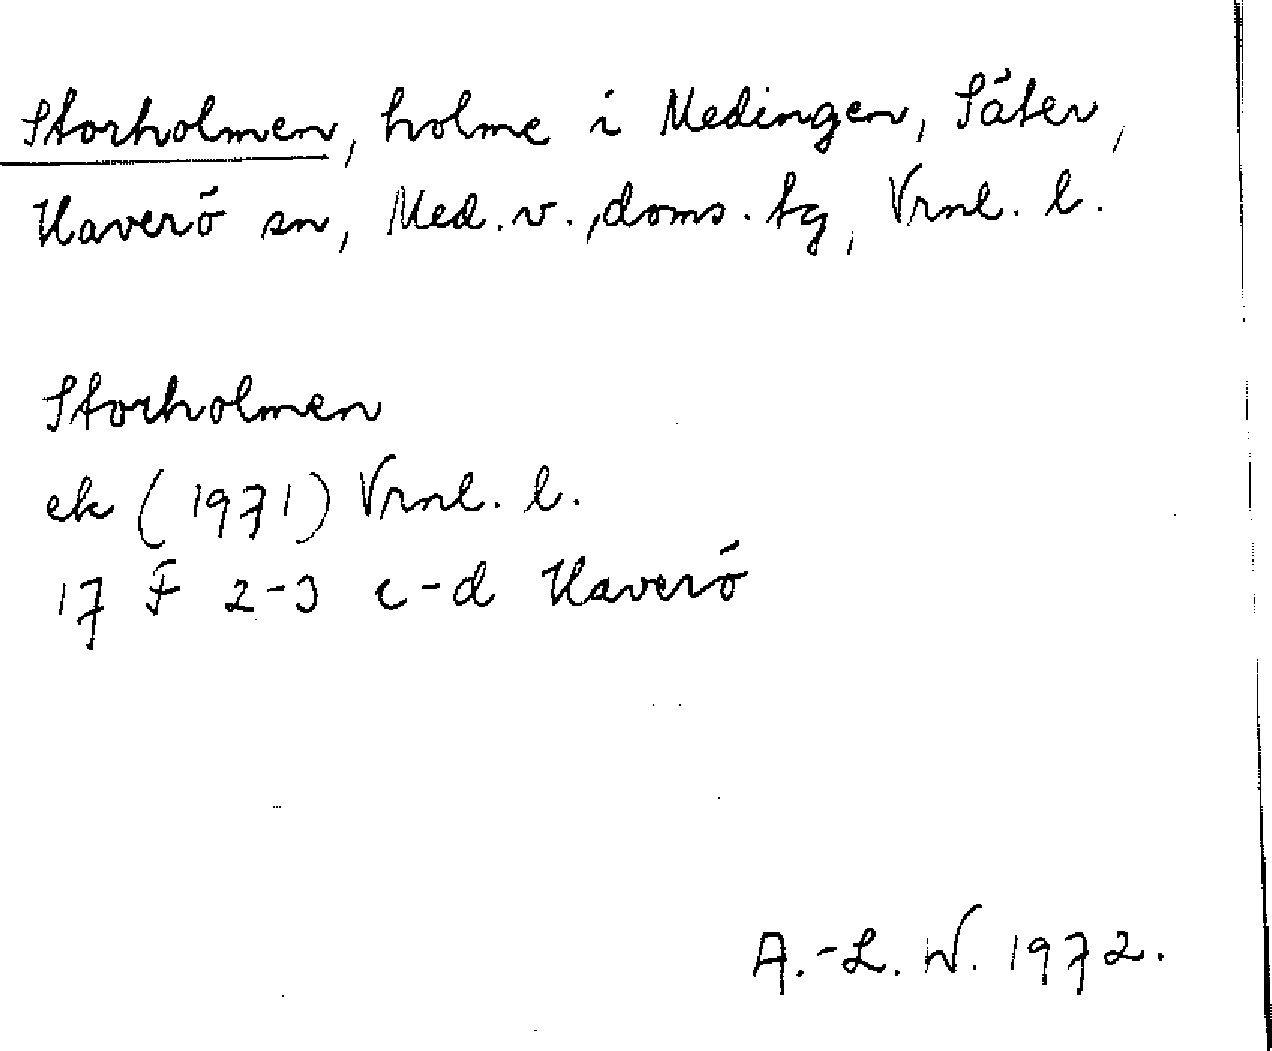 Storholmen, holme i Medingen, Säter,
Haverö sn, Med. v., doms. tg, Vrnl. l.
Storholmen
ek (1971) Vrnl. l.
17 F 2-3 c-d Haverö
A.-L. W. 1972.